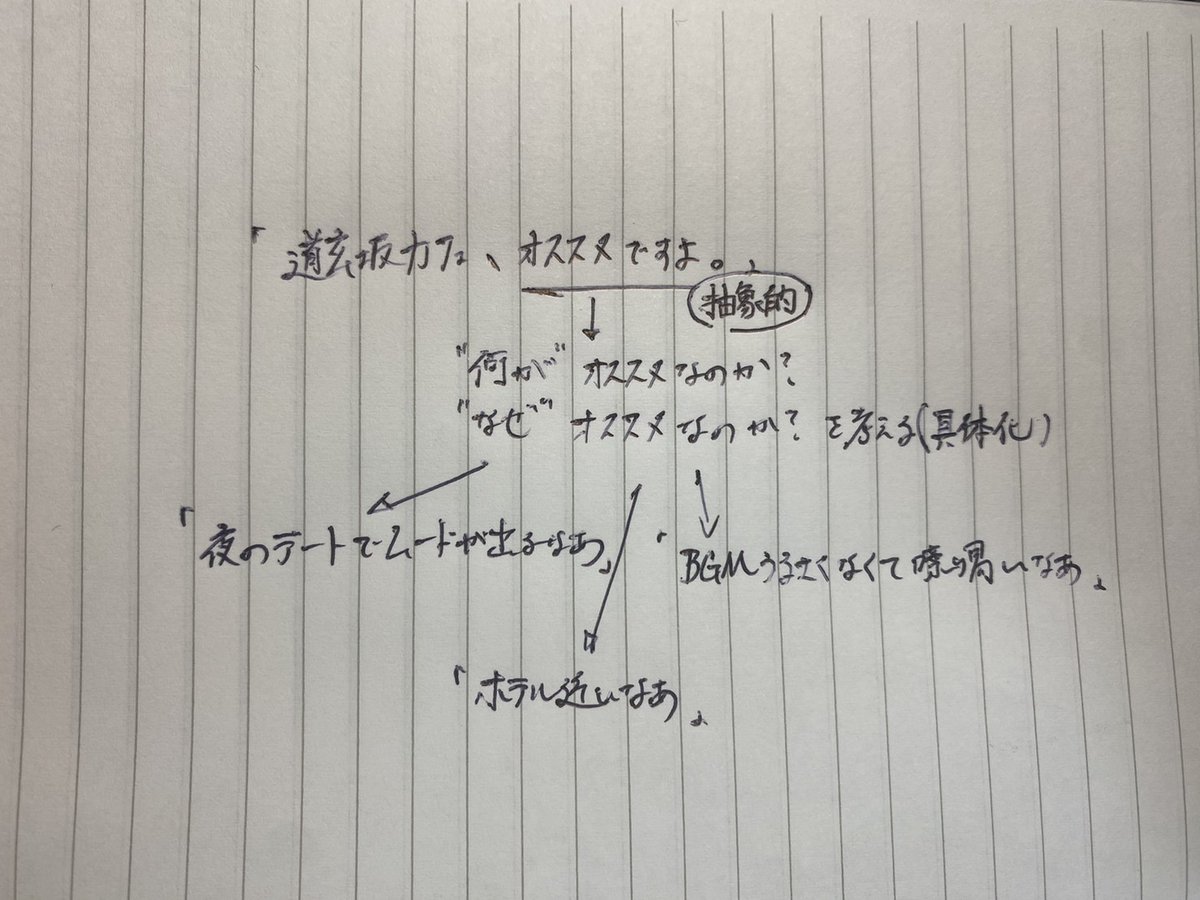 「道玄坂カフェ、オススメですよ。」
抽象的
"何が" オススメなのか?
"なぜ" オススメなのか? を考える(具体化)
「夜のデートでムードが出るなあ」
「BGMうるさくなくて
いなあ」
「ホテル近いなあ」